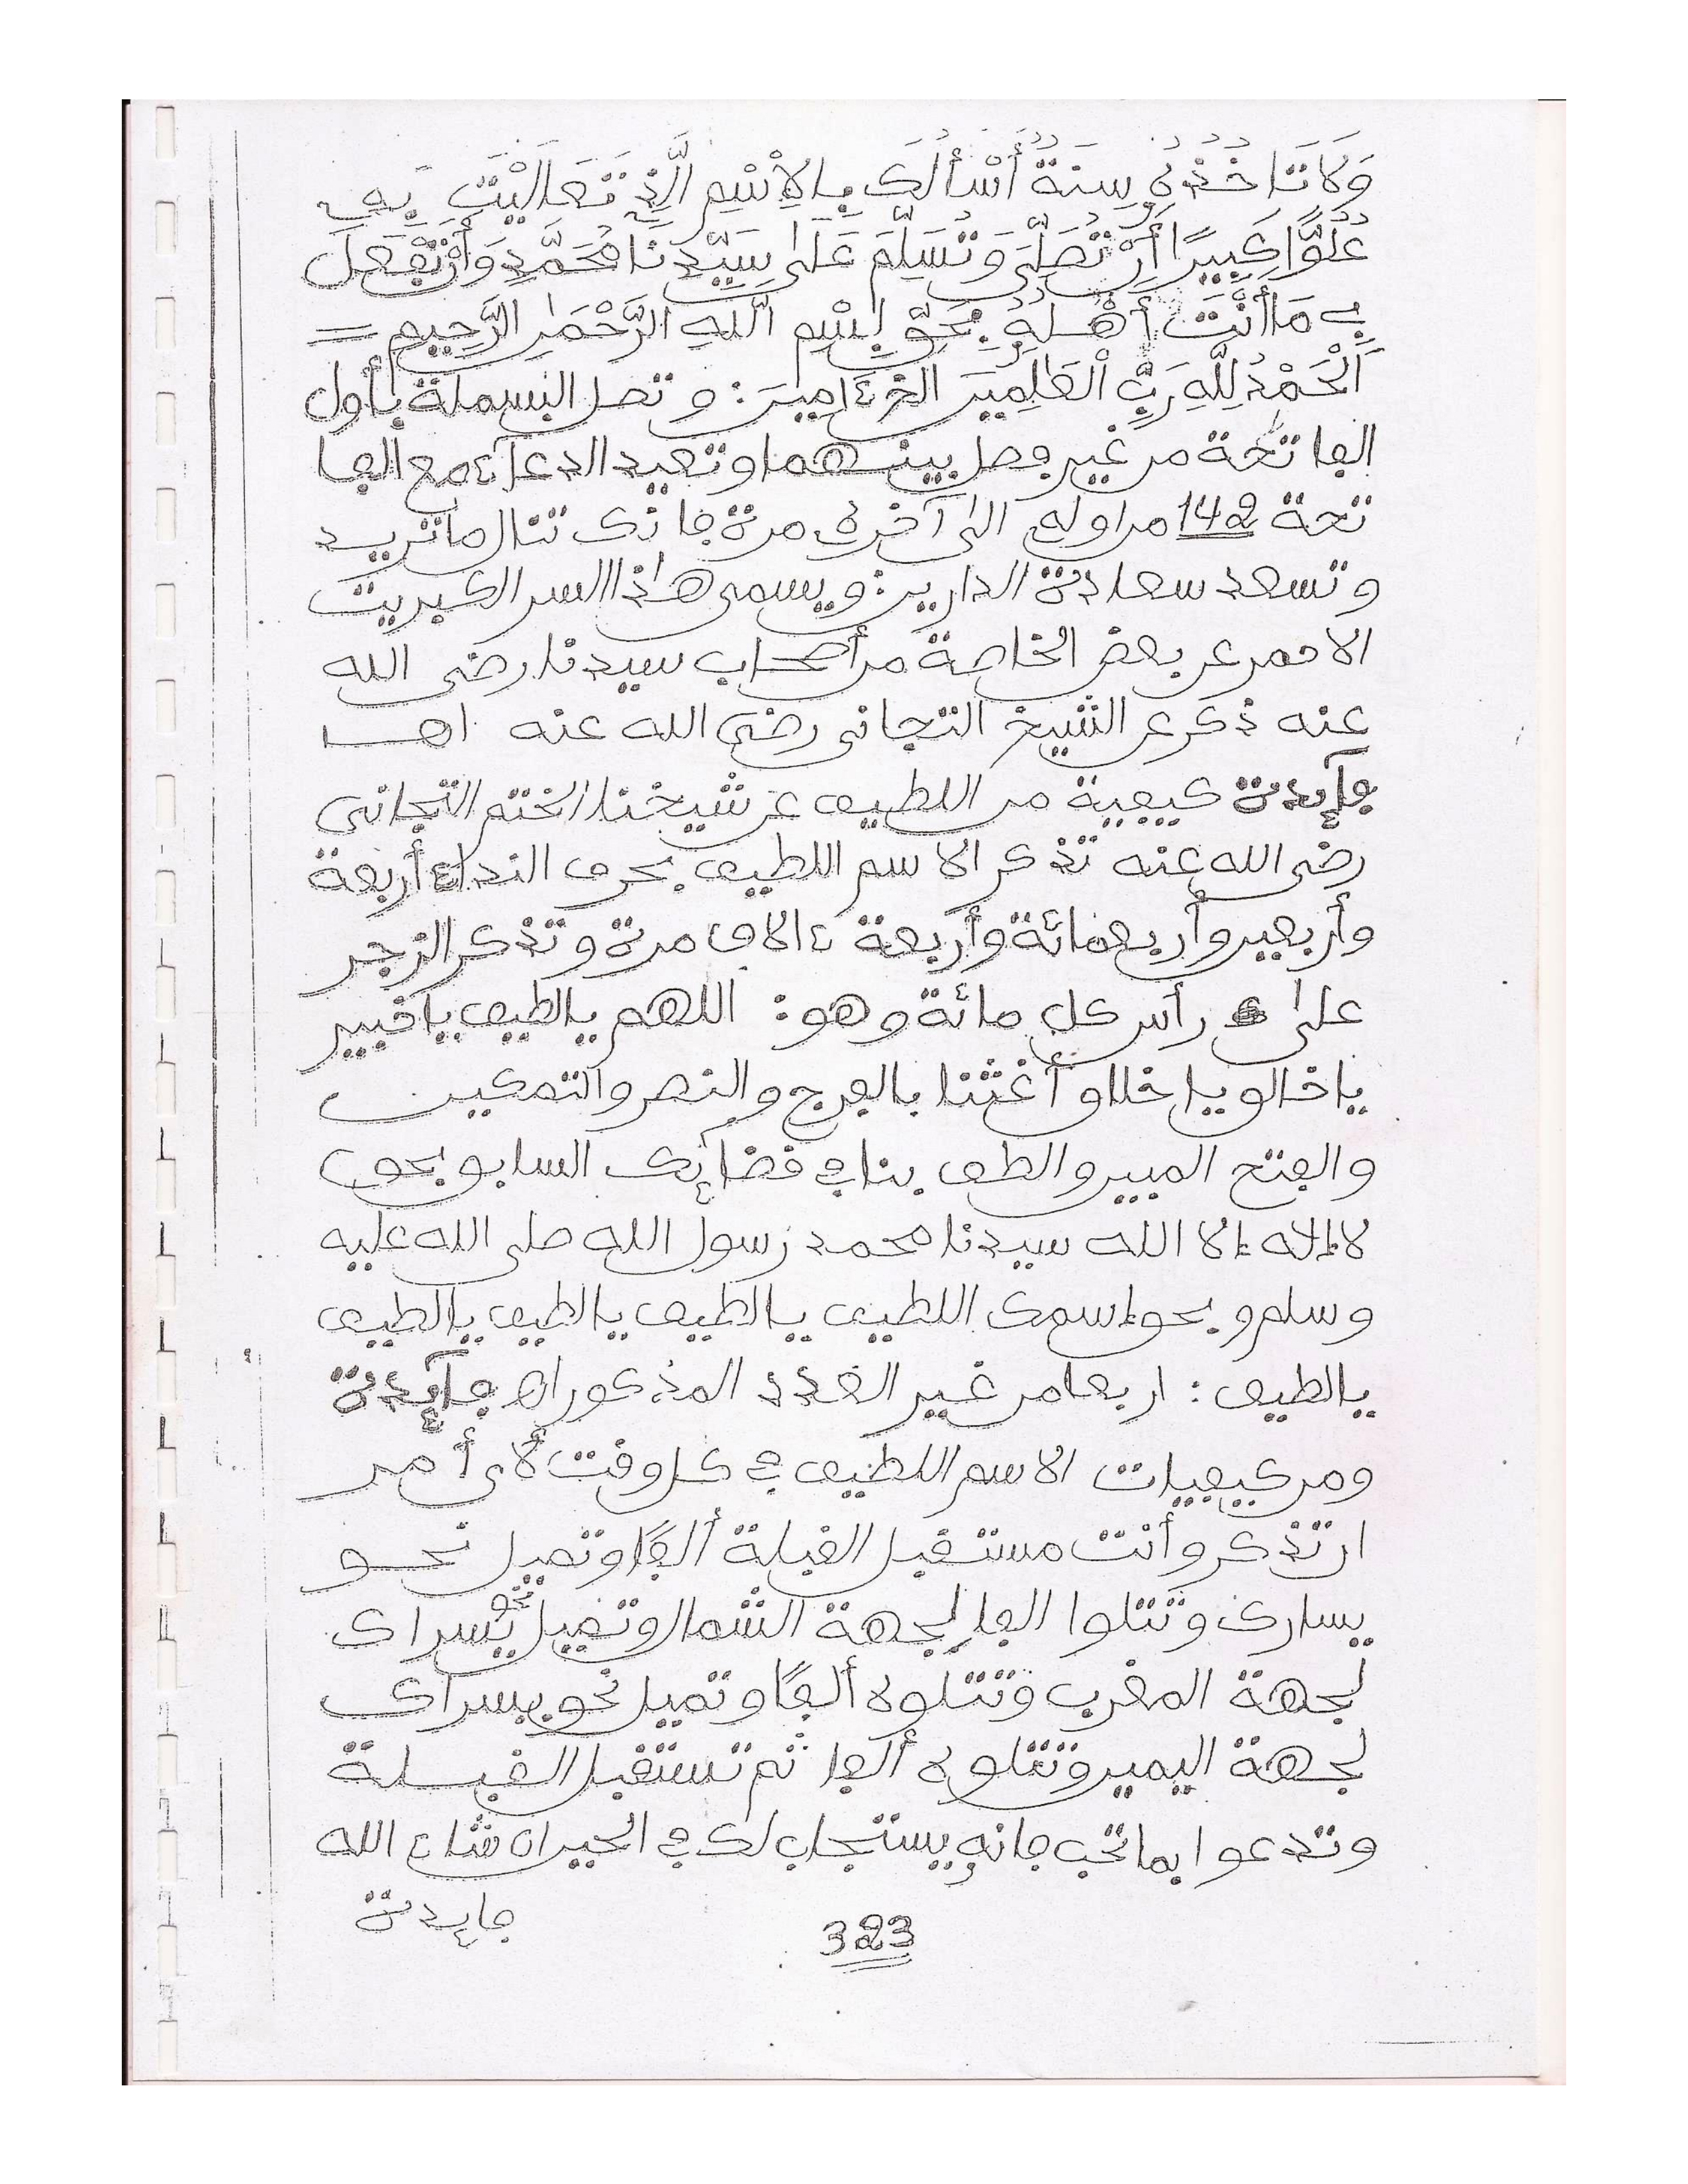 وَلَا تَاخُذُهُ سِنَةٌ أَسْأَلُكَ بِالِاسْمِ الَّذِے تَعَالَيْتَ بِهِ
عُلُوًّا كَبِيرًا أَن تُصَلِّيَ وَتُسَلِّمَ عَلَىٰ سَيِّدِنَا مُحَمَّدٍ وَأَن تَفْعَلَ
بِے مَا أَنْتَ أَهْلُهُ بِحَقِّ بِسْمِ اللَّهِ الرَّحْمَٰنِ الرَّحِيمِ =
اَلْحَمْدُ لِلَّهِ رَبِّ الْعَالَمِينَ الخ ءامِينَ: وتصل البسملة بأول
الفاتحة من غير فصل بينهما وتعيد الدعاء مع الفا
تحة 142 من اوله الى آخره مرة فانك تنال ما تريد
وتسعد سعادة الدارين: ويسمى هذا السر الكبريت
الاحمر عن بعض الخاصة من أصحاب سيدنا رضى الله
عنه ذكر عن الشيخ التجانى رضى الله عنه اهـ
فآئدة كيفية من اللطيف عن شيخنا الختم التجانى
رضى الله عنه تذكر الاسم اللطيف بحرف النداء أربعة
وأربعين وأربعمائة وأربعة ءالاف مرة وتذكر الزجر
على رأس كل مائة وهو: اللهم يالطيف ياخبير
ياخالق ياخلاق أغثنا بالفرج والنصر والتمكين
والفتح المبين والطف بنا في قضائك السابق بحق
لاإلاه إلا الله سيدنا محمد رسول الله صلى الله عليه
وسلم وبحق إسمك اللطيف يالطيف يالطيف يالطيف
يالطيف: اربعا من غير العدد المذكور اه فآئدة
ومن كيفيات الاسم اللطيف في كل وقت لأى أمر
ان تذكر وأنت مستقبل القبلة ألفًا وتميل نحو
يسارك وتتلوا الفا لجهة الشمال وتميل نحو يسراك
لجهة المغرب وتتلوه ألفًا وتميل نحو يسراك
لجهة اليمين وتتلوه ألفا ثم تستقبل القبلة
وتدعوا بما تحب فانه يستجاب لك في الحين ان شاء الله
فايدة
323